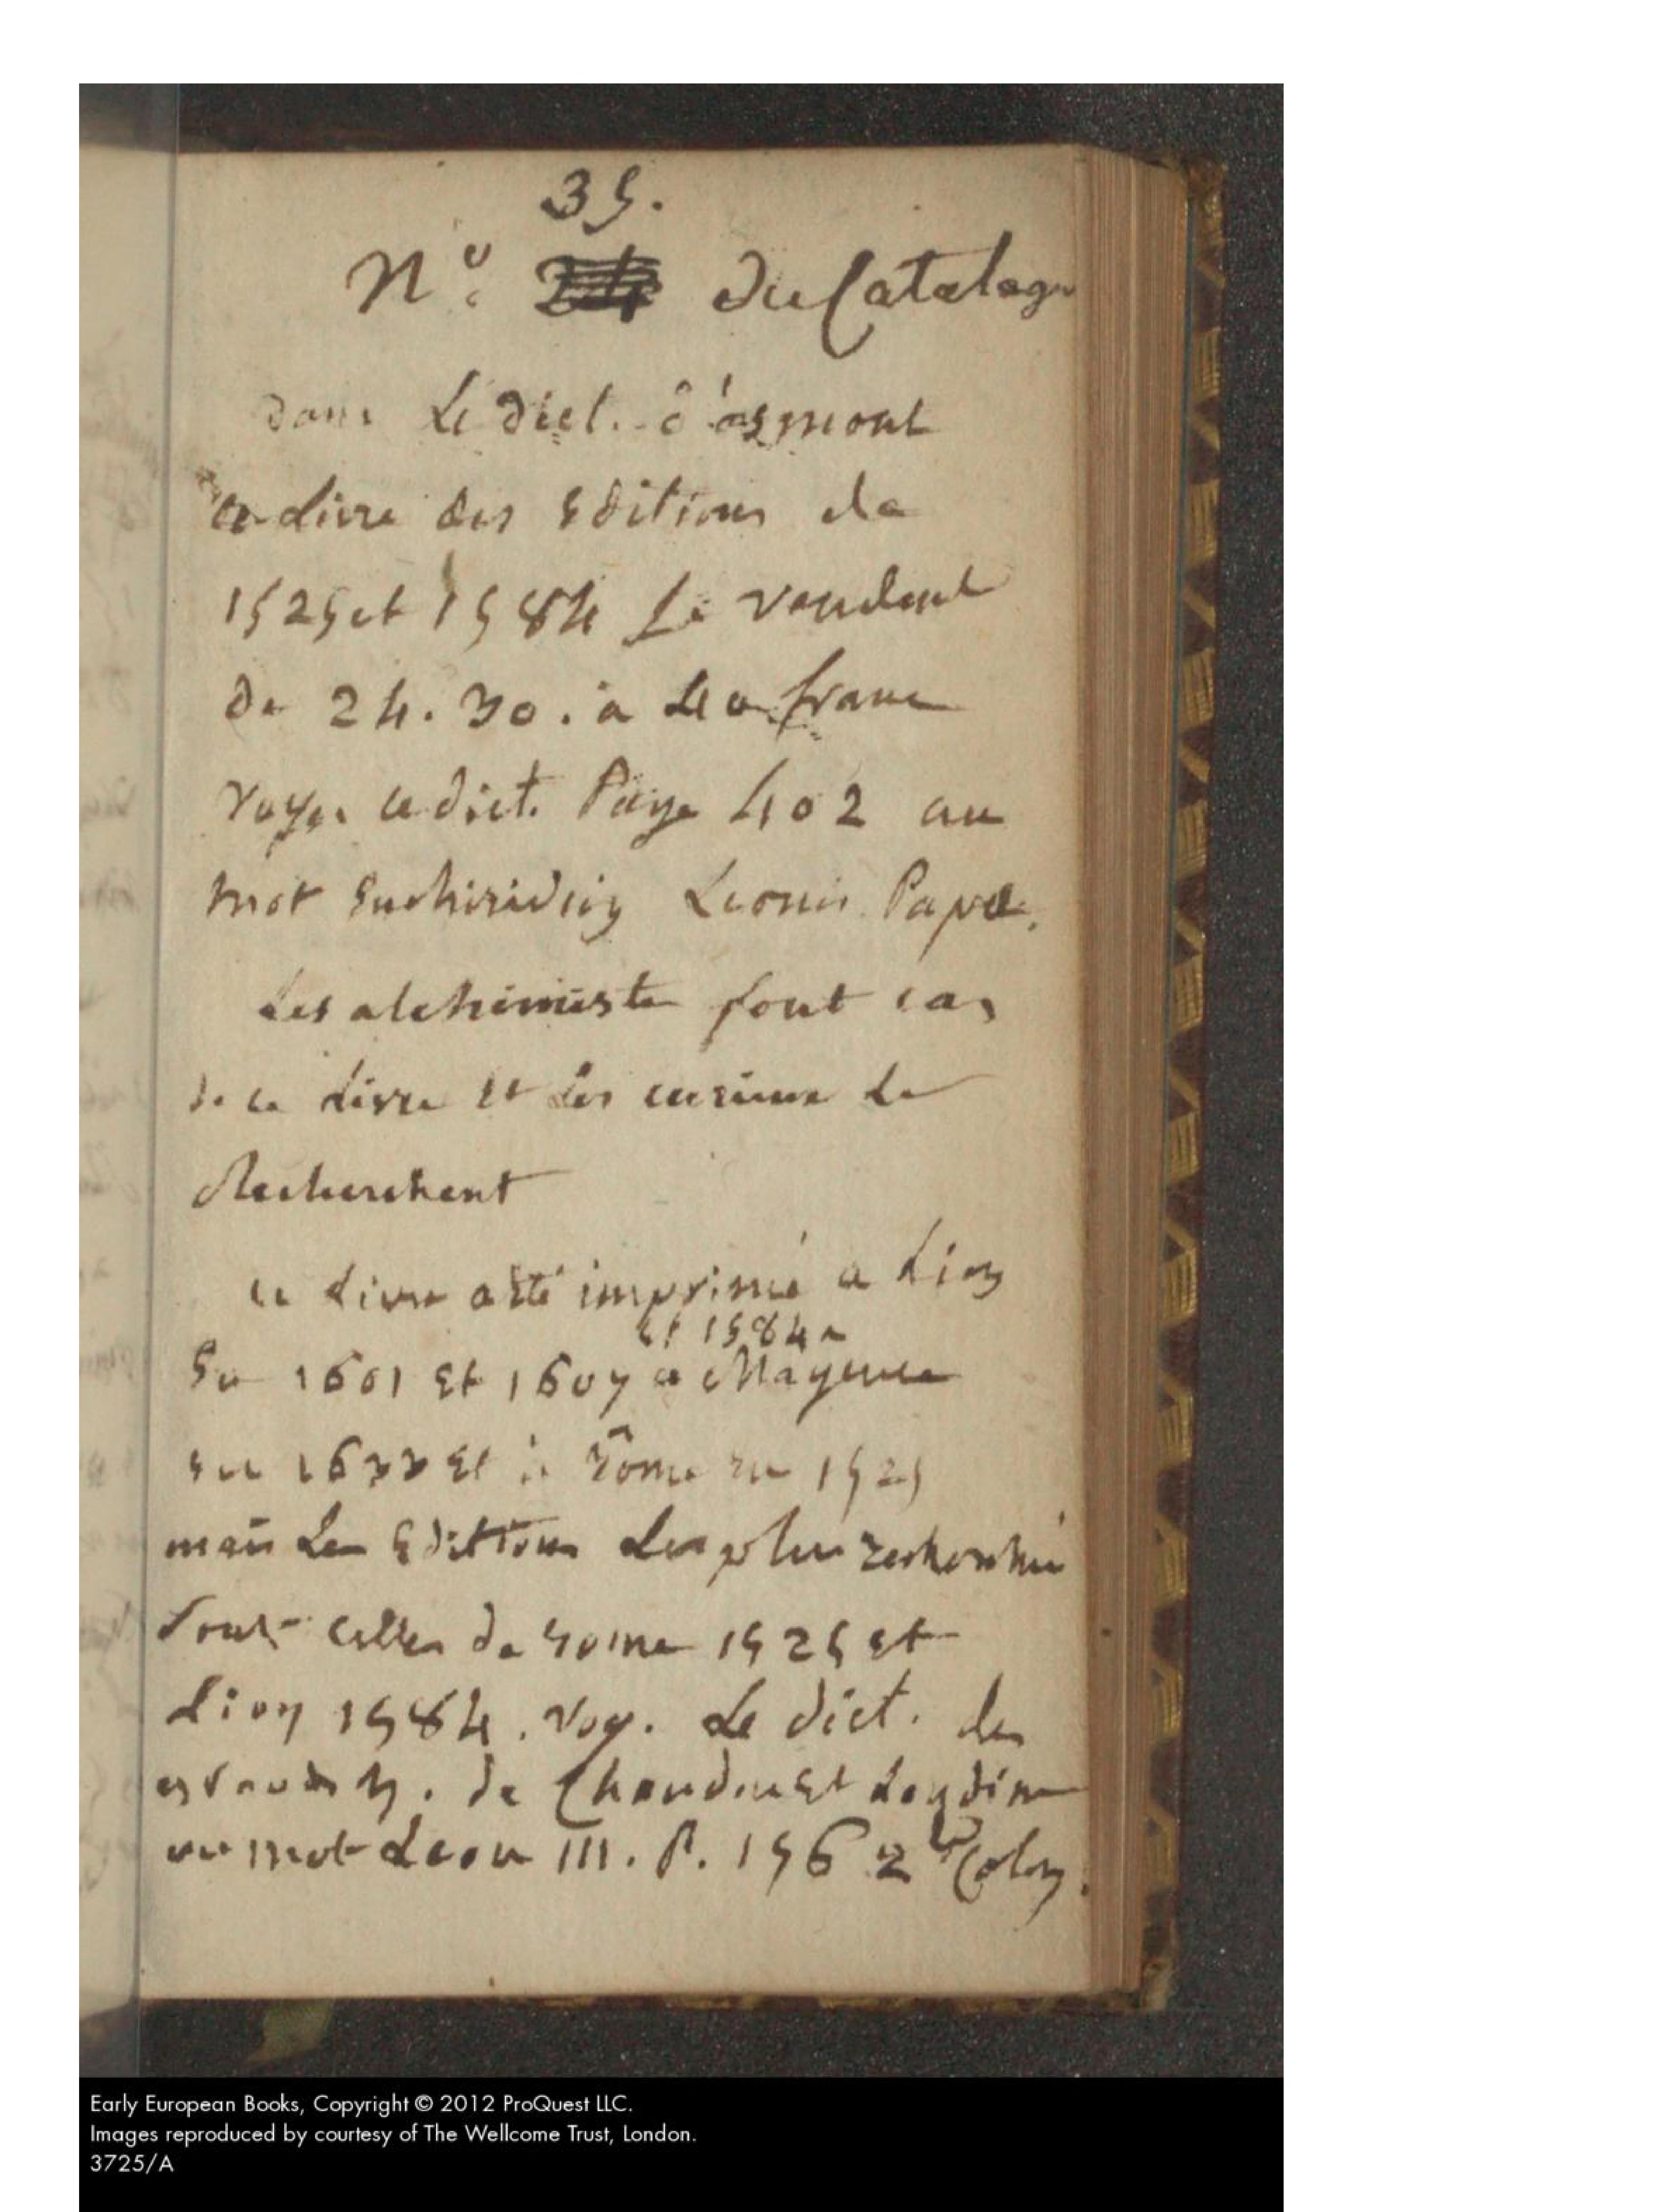 35.
N.º du Catalogu
dans Le dict. d'osmont
ce Livre des Editions de
1525 et 1584 se vendent
de 24. 30. a 40 franc
voyez ce dict. Page 402 au
mot Enchiridion Leonis Papæ.
Les alchimiste font cas
de ce Livre Et Les curieux Le
Recherchent
ce Livre a Eté imprimé a Lion
et 1584 a
En 1601 Et 1607 a Mayence
en 1633 Et à Rome en 1525
mais Les Editions Les plus recherchée
sont celles de Rome 1525 et
Lion 1584. voy. Le dict. des
de Chaudon Et Landine
au mot Leon III. P. 156 2e Colon.
Early European Books, Copyright © 2012 ProQuest LLC.
Images reproduced by courtesy of The Wellcome Trust, London.
3725/A